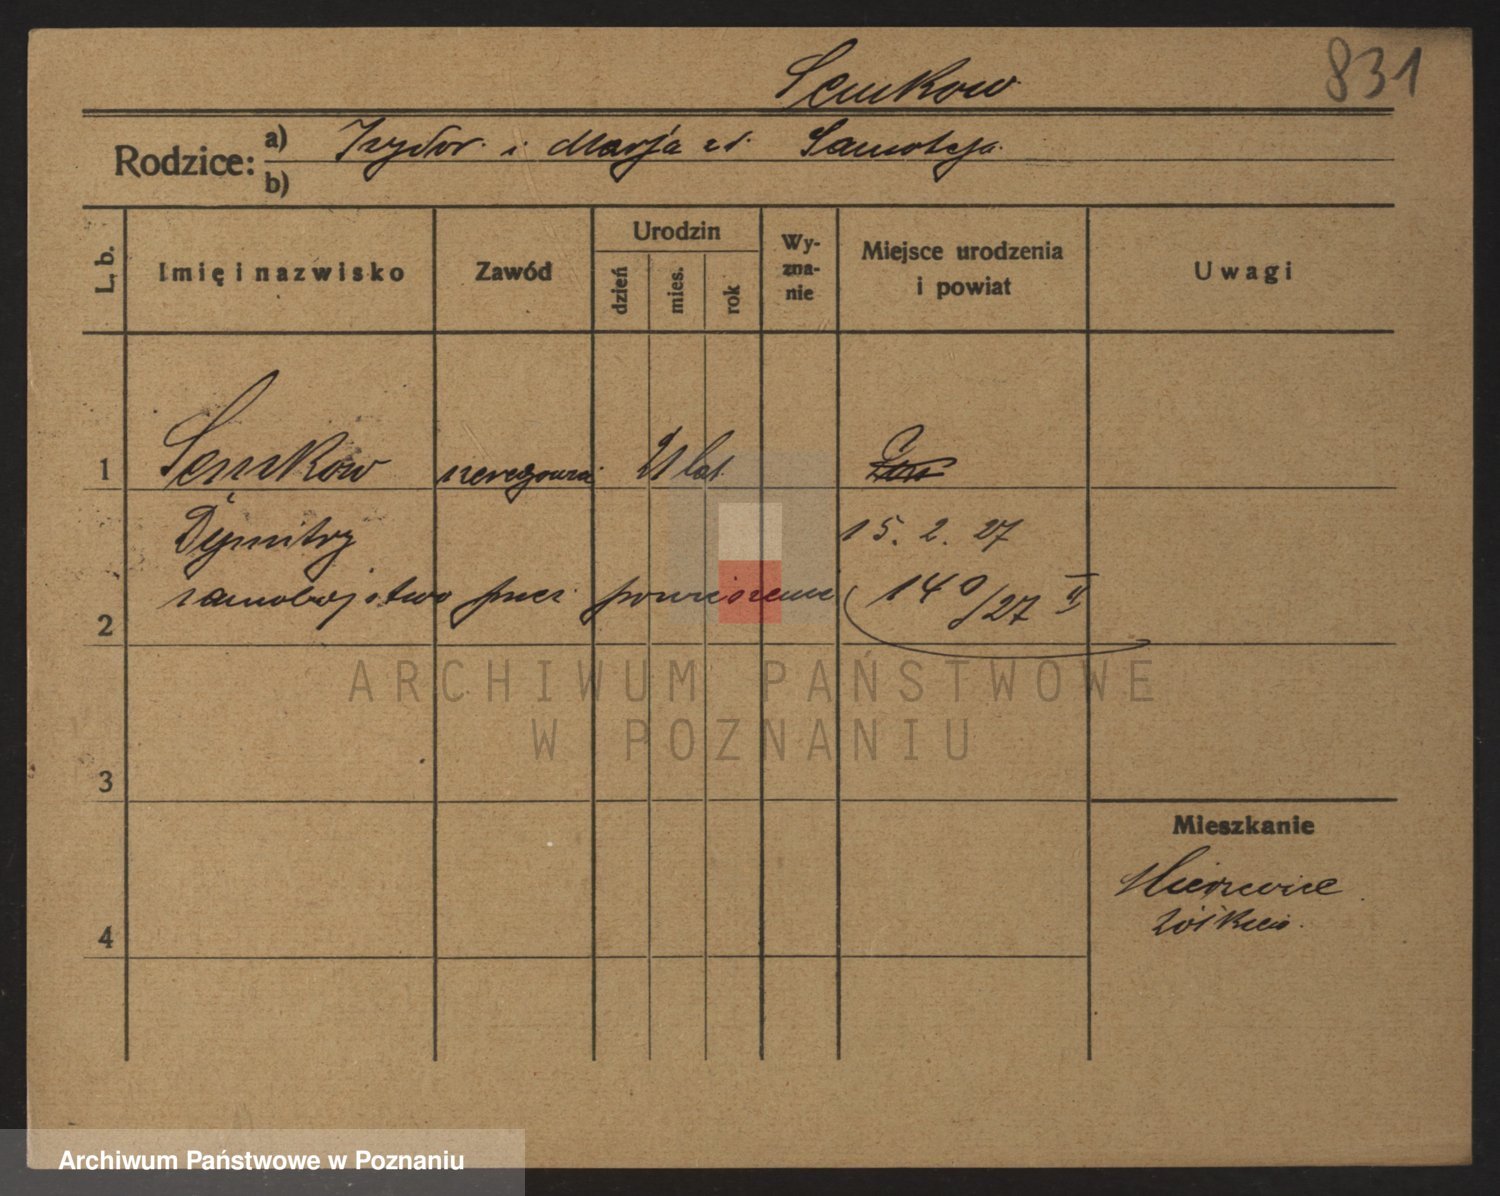 831
Semkow
Rodzice: a) Izydor i Marja zd. Samoteja
b)
L. b.
Imię i nazwisko
Zawód
Urodzin
dzień
mies.
rok
Wy-
zna-
nie
Miejsce urodzenia
i powiat
Uwagi
1 Semkow 21 lat
Dymitry 15. 2. 27
samobójstwo przez powieszenie 14 0/27 II
2
3
Mieszkanie
4
ARCHIWUM PAŃSTWOWE
W POZNANIU
Archiwum Państwowe w Poznaniu